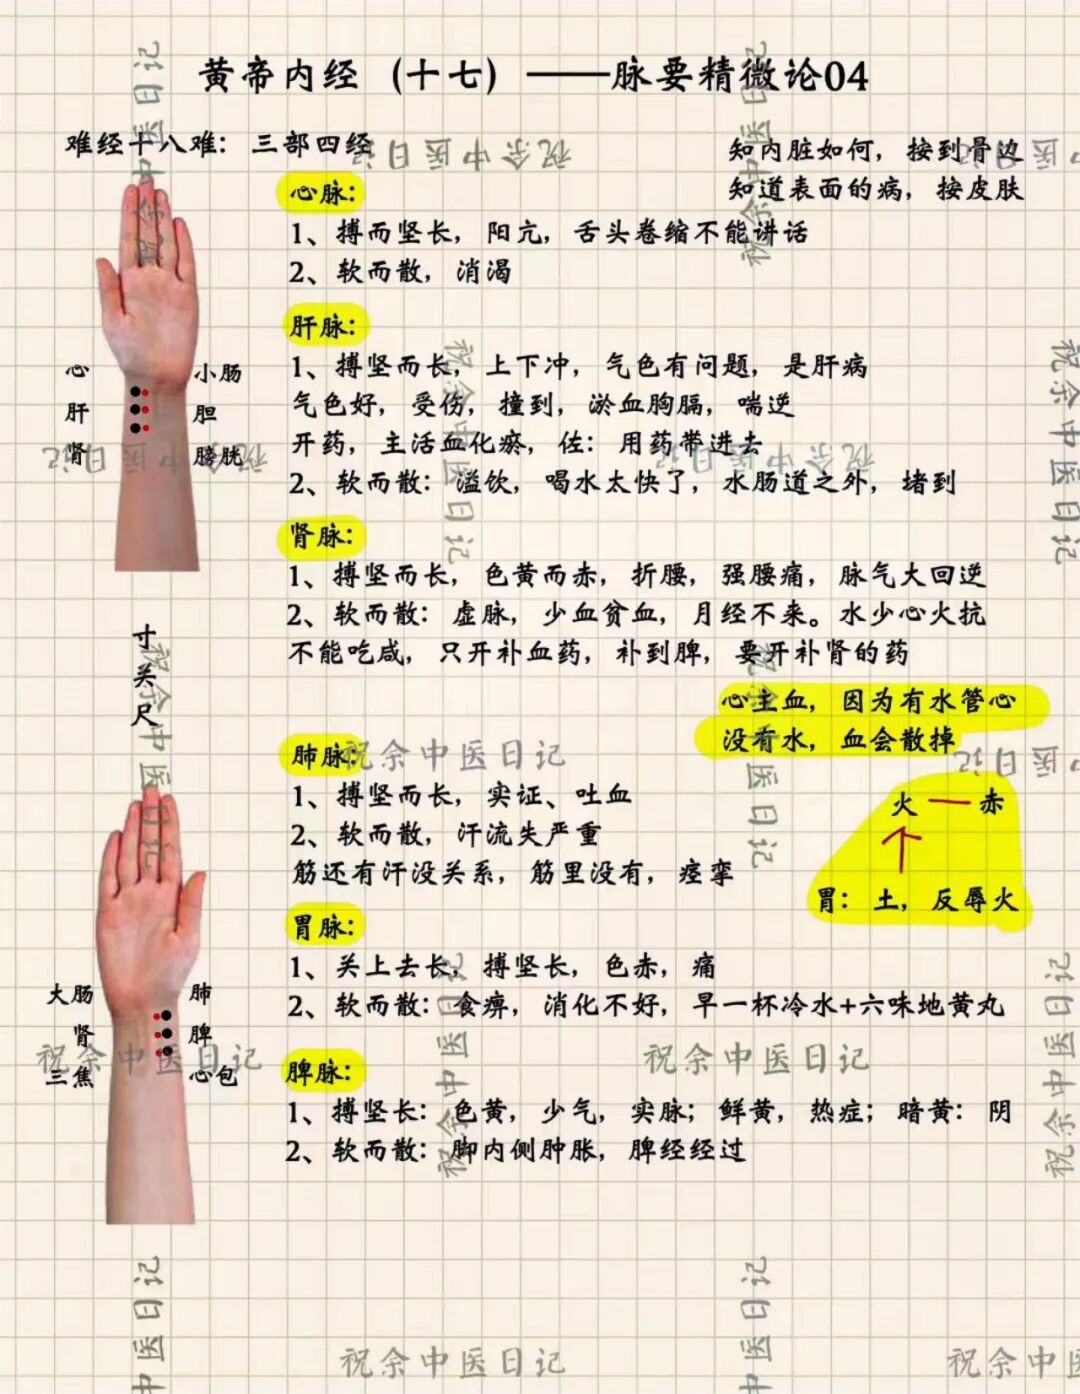 黄帝内经（十七）——脉要精微论04
难经十八难：三部四经
知内脏如何，按到骨边
知道表面的病，按皮肤
心脉：
1、搏而坚长，阳亢，舌头卷缩不能讲话
2、软而散，消渴
肝脉：
1、搏坚而长，上下冲，气色有问题，是肝病
气色好，受伤，撞到，淤血胸膈，喘逆
开药，主活血化瘀，佐：用药带进去
2、软而散：溢饮，喝水太快了，水肠道之外，堵到
心 小肠
肝 胆
肾 膀胱
肾脉：
1、搏坚而长，色黄而赤，折腰，强腰痛，脉气大回逆
2、软而散：虚脉，少血贫血，月经不来。水少心火抗
不能吃咸，只开补血药，补到脾，要开补肾的药
寸
关
尺
心主血，因为有水管心
没有水，血会散掉
肺脉：
1、搏坚而长，实证、吐血
2、软而散，汗流失严重
筋还有汗没关系，筋里没有，痉挛
火 — 赤
胃：土，反辱火
胃脉：
1、关上去长，搏坚长，色赤，痛
2、软而散：食痹，消化不好，早一杯冷水+六味地黄丸
大肠 肺
肾 脾
三焦 心包
脾脉：
1、搏坚长：色黄，少气，实脉；鲜黄，热症；暗黄：阴
2、软而散：脚内侧肿胀，脾经经过
祝余中医日记